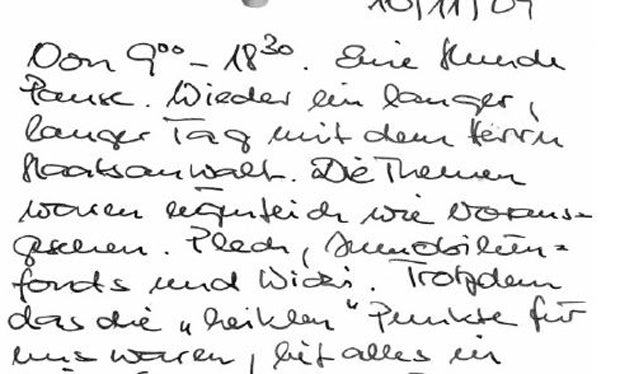 10/11/09
Von 9⁰⁰ - 18³⁰. Eine Stunde
Pause. Wieder ein langer,
langer Tag mit dem Herrn
Staatsanwalt. Die Themen
waren eigentlich wie voraus-
gesehen. Plech, Immobilien=
fonds und Widi. Trotzdem
das die „heiklen" Punkte für
uns waren, lief alles in